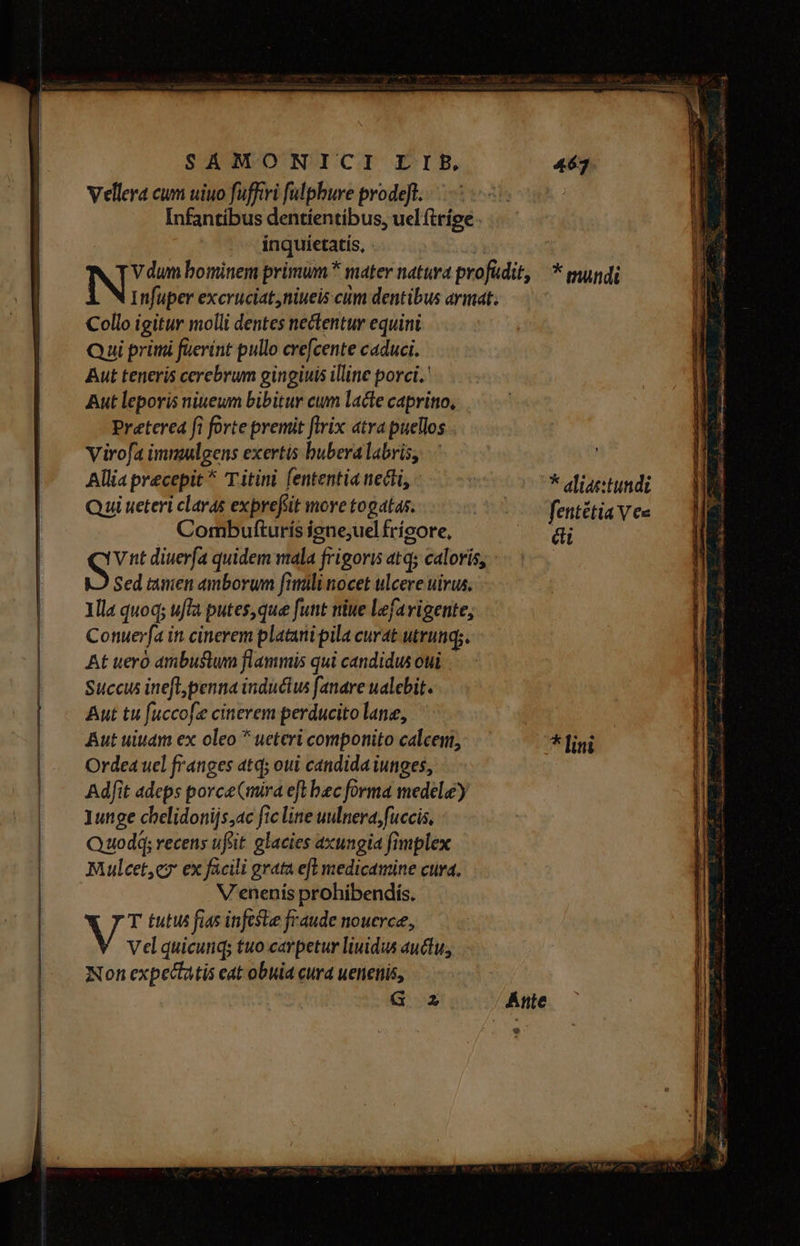 SAMONICI LIB. 467
Vellera cum uiuo ſuffiri ſulphure prodeſt.
Infantibus dentientibus, uel ſtrige
inquietatis.
NVdum hominem primum * mater natura profudit, * mundi
Inſuper excruciat, niueis cùm dentibus armat.
Collo igitur molli dentes nectentur equini
Qui primi fuerint pullo creſcente caduci.
Aut teneris cerebrum gingiuis illine porci.
Aut leporis niueum bibitur cum lacte caprino,
Præterea ſi forte premit ſtrix atra puellos
Viroſa immulgens exertis hubera labris,
Allia præcepit * Titini ſententia necti, * aliàs:tundi
Qui ueteri claras expreſsit more togatas. ſentētia Ve=
Combuſturis igne, uel frigore. cti
SVnt diuerſa quidem mala frigoris atq; caloris,
Sed tamen amborum ſimili nocet ulcere uirus.
Illa quoq; uſta putes, quæ ſunt niue læſa rigente,
Conuerſa in cinerem platani pila curat utrunq;.
At uerò ambuſtum flammis qui candidus oui
Succus ineſt, penna inductus ſanare ualebit.
Aut tu ſuccoſæ cinerem perducito lanæ,
Aut uiuam ex oleo * ueteri componito calcem, * lini
Ordea uel franges atq; oui candida iunges,
Adſit adeps porcæ (mira eſt hæc forma medelæ)
Iunge chelidonijs, ac ſic line uulnera, ſuccis.
Quodq; recens uſsit glacies axungia ſimplex
Mulcet, & ex facili grata eſt medicamine cura.
Venenis prohibendis.
VT tutus ſias infeſtæ fraude nouercæ,
Vel quicunq; tuo carpetur liuidus auctu,
Non expectatis eat obuia cura uenenis,
G 2 Ante